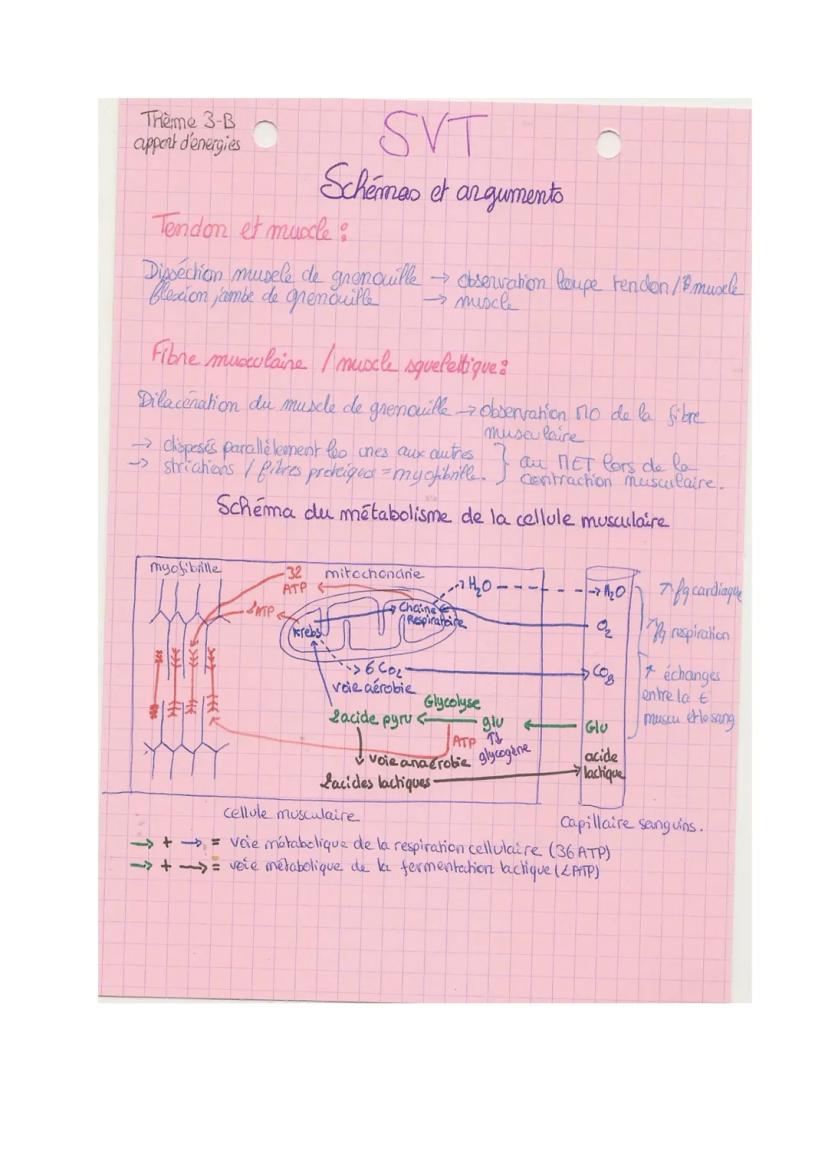 Thème 3-B
apport d'énergies
SVT
Schémas et arguments
Tendon et muscle :
Disséction muscle de grenouille → observation loupe tendon / muscle
flexion jambe de grenouille → muscle
Fibre musculaire / muscle squelettique :
Dilacération du muscle de grenouille → observation MO de la fibre
musculaire
→ disposés parallèlement les unes aux autres
→ striations / fibres protéiques = myofibrille.
} au MET lors de la
contraction musculaire.
Schéma du métabolisme de la cellule musculaire
myofibrille
32
ATP
mitochondrie
H₂O
H₂O
↗ fq cardiaque
2ATP
Krebs
Chaîne
Respiratoire
O₂
↗ fq respiration
6 CO₂
CO₂
↗ échanges
entre la
muscu et le sang
voie aérobie
Glycolyse
2 acide pyru
glu
Glu
ATP
glycogène
voie anaérobie
acide
lactique
2 acides lactiques
cellule musculaire
Capillaire sanguins.
→ + → = voie métabolique de la respiration cellulaire (36 ATP)
→ + → = voie métabolique de la fermentation lactique (2ATP)